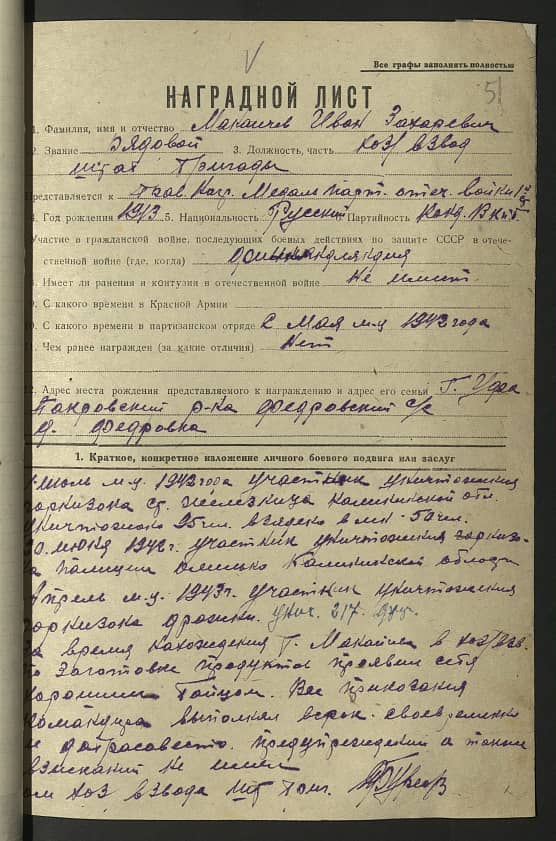 Все графы заполнять полностью
51
НАГРАДНОЙ ЛИСТ
1. Фамилия, имя и отчество Макаичев Иван Захаревич
2. Звание Рядовой 3. Должность, часть хоз/взвод
штаб бригады
Представляется к Медаль парт. отеч. войны
4. Год рождения 1913 5. Национальность Русский Партийность Канд. ВКПб
Участие в гражданской войне, последующих боевых действиях по защите СССР в отече-
ственной войне (где, когда)
8. Имеет ли ранения и контузии в отечественной войне Не имеит.
9. С какого времени в Красной Армии
0. С какого времени в партизанском отряде С Мая м-ц 1942 года
1. Чем ранее награжден (за какие отличия) Нет
2. Адрес места рождения представляемого к награждению и адрес его семьи Г. Уфа
Пакровский р-на Федровский с/с
д. Федровка
1. Краткое, конкретное изложение личного боевого подвига или заслуг
Июль м-ц 1942 года участник уничтожения
гарнизона ст. Железница Калининской отл.
уничтожено 25 чел. взялено в пл - 50 чел.
30 июня 1942 г. участник уничтожения гарнизо-
на полиции Калининской области
Апрель м-ц 1943 г. участник уничтожения
гарнизона уни. 217
за время нахождения Т. в хоз/взв.
по заготовке продуктов проявил себя
харошим байцом. Все приказания
командира выполнял своевременно
и предупреждений а также
взысканий не имеит
ком хоз взвода шт бриг.